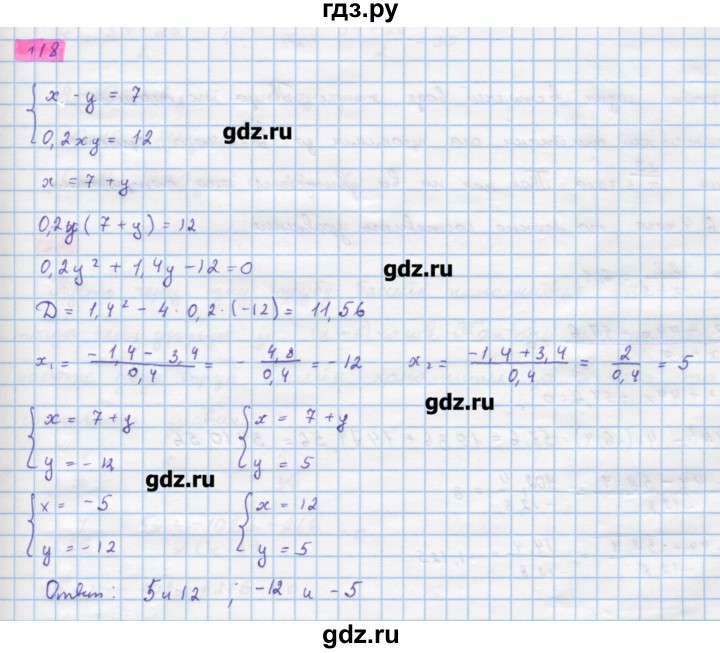 гдз.ру
118
x - y = 7
0,2xy = 12
gdz.ru
x = 7 + y
0,2y(7 + y) = 12
0,2y² + 1,4y - 12 = 0
gdz.ru
D = 1,4² - 4 · 0,2 · (-12) = 11,56
x₁ = (-1,4 - 3,4)/0,4 = - 4,8/0,4 = -12 x₂ = (-1,4 + 3,4)/0,4 = 2/0,4 = 5
gdz.ru
x = 7 + y x = 7 + y
y = -12 y = 5
gdz.ru
x = -5 x = 12
y = -12 y = 5
Ответ: 5 и 12 ; -12 и -5
gdz.ru